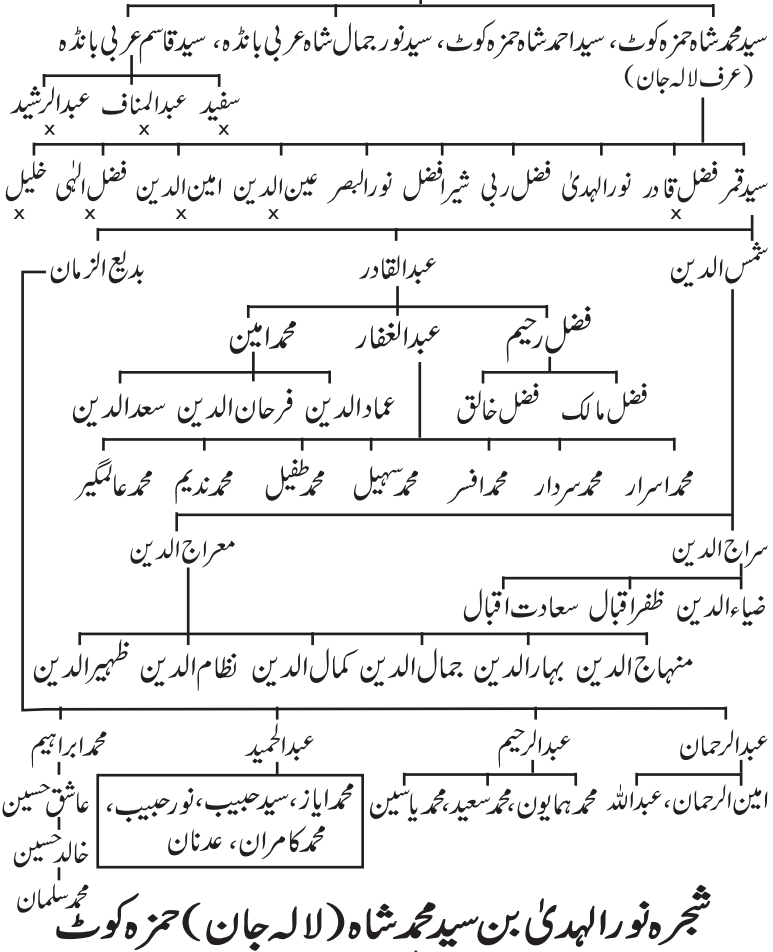 سید محمد شاہ حمزہ کوٹ، سید احمد شاہ حمزہ کوٹ، سید نور جمال شاہ عربی بانڈہ، سید قاسم عربی بانڈہ
(عرف لالہ جان)
سفید عبدالمناف عبدالرشید
x x x
سید قمر فضل قادر نورالہدیٰ فضل ربی شیرافضل نورالبصر عین الدین امین الدین فضل الٰہی خلیل
x x x x x
شمس الدین عبدالقادر بدیع الزمان
فضل رحیم عبدالغفار محمد امین
فضل مالک فضل خالق عماد الدین فرحان الدین سعد الدین
محمد اسرار محمد سردار محمد افسر محمد سہیل محمد طفیل محمد ندیم محمد عالمگیر
سراج الدین معراج الدین
ضیاء الدین ظفر اقبال سعادت اقبال
منہاج الدین بہار الدین جمال الدین کمال الدین نظام الدین ظہیر الدین
عبدالرحمان عبدالرحیم عبدالحمید محمد ابراہیم
امین الرحمان، عبداللہ محمد ہمایون، محمد سعید، محمد یاسین محمد ایاز، سید حبیب، نور حبیب، عاشق حسین
محمد کامران، عدنان خالد حسین
محمد سلمان
شجرہ نورالہدیٰ بن سید محمد شاہ (لالہ جان) حمزہ کوٹ